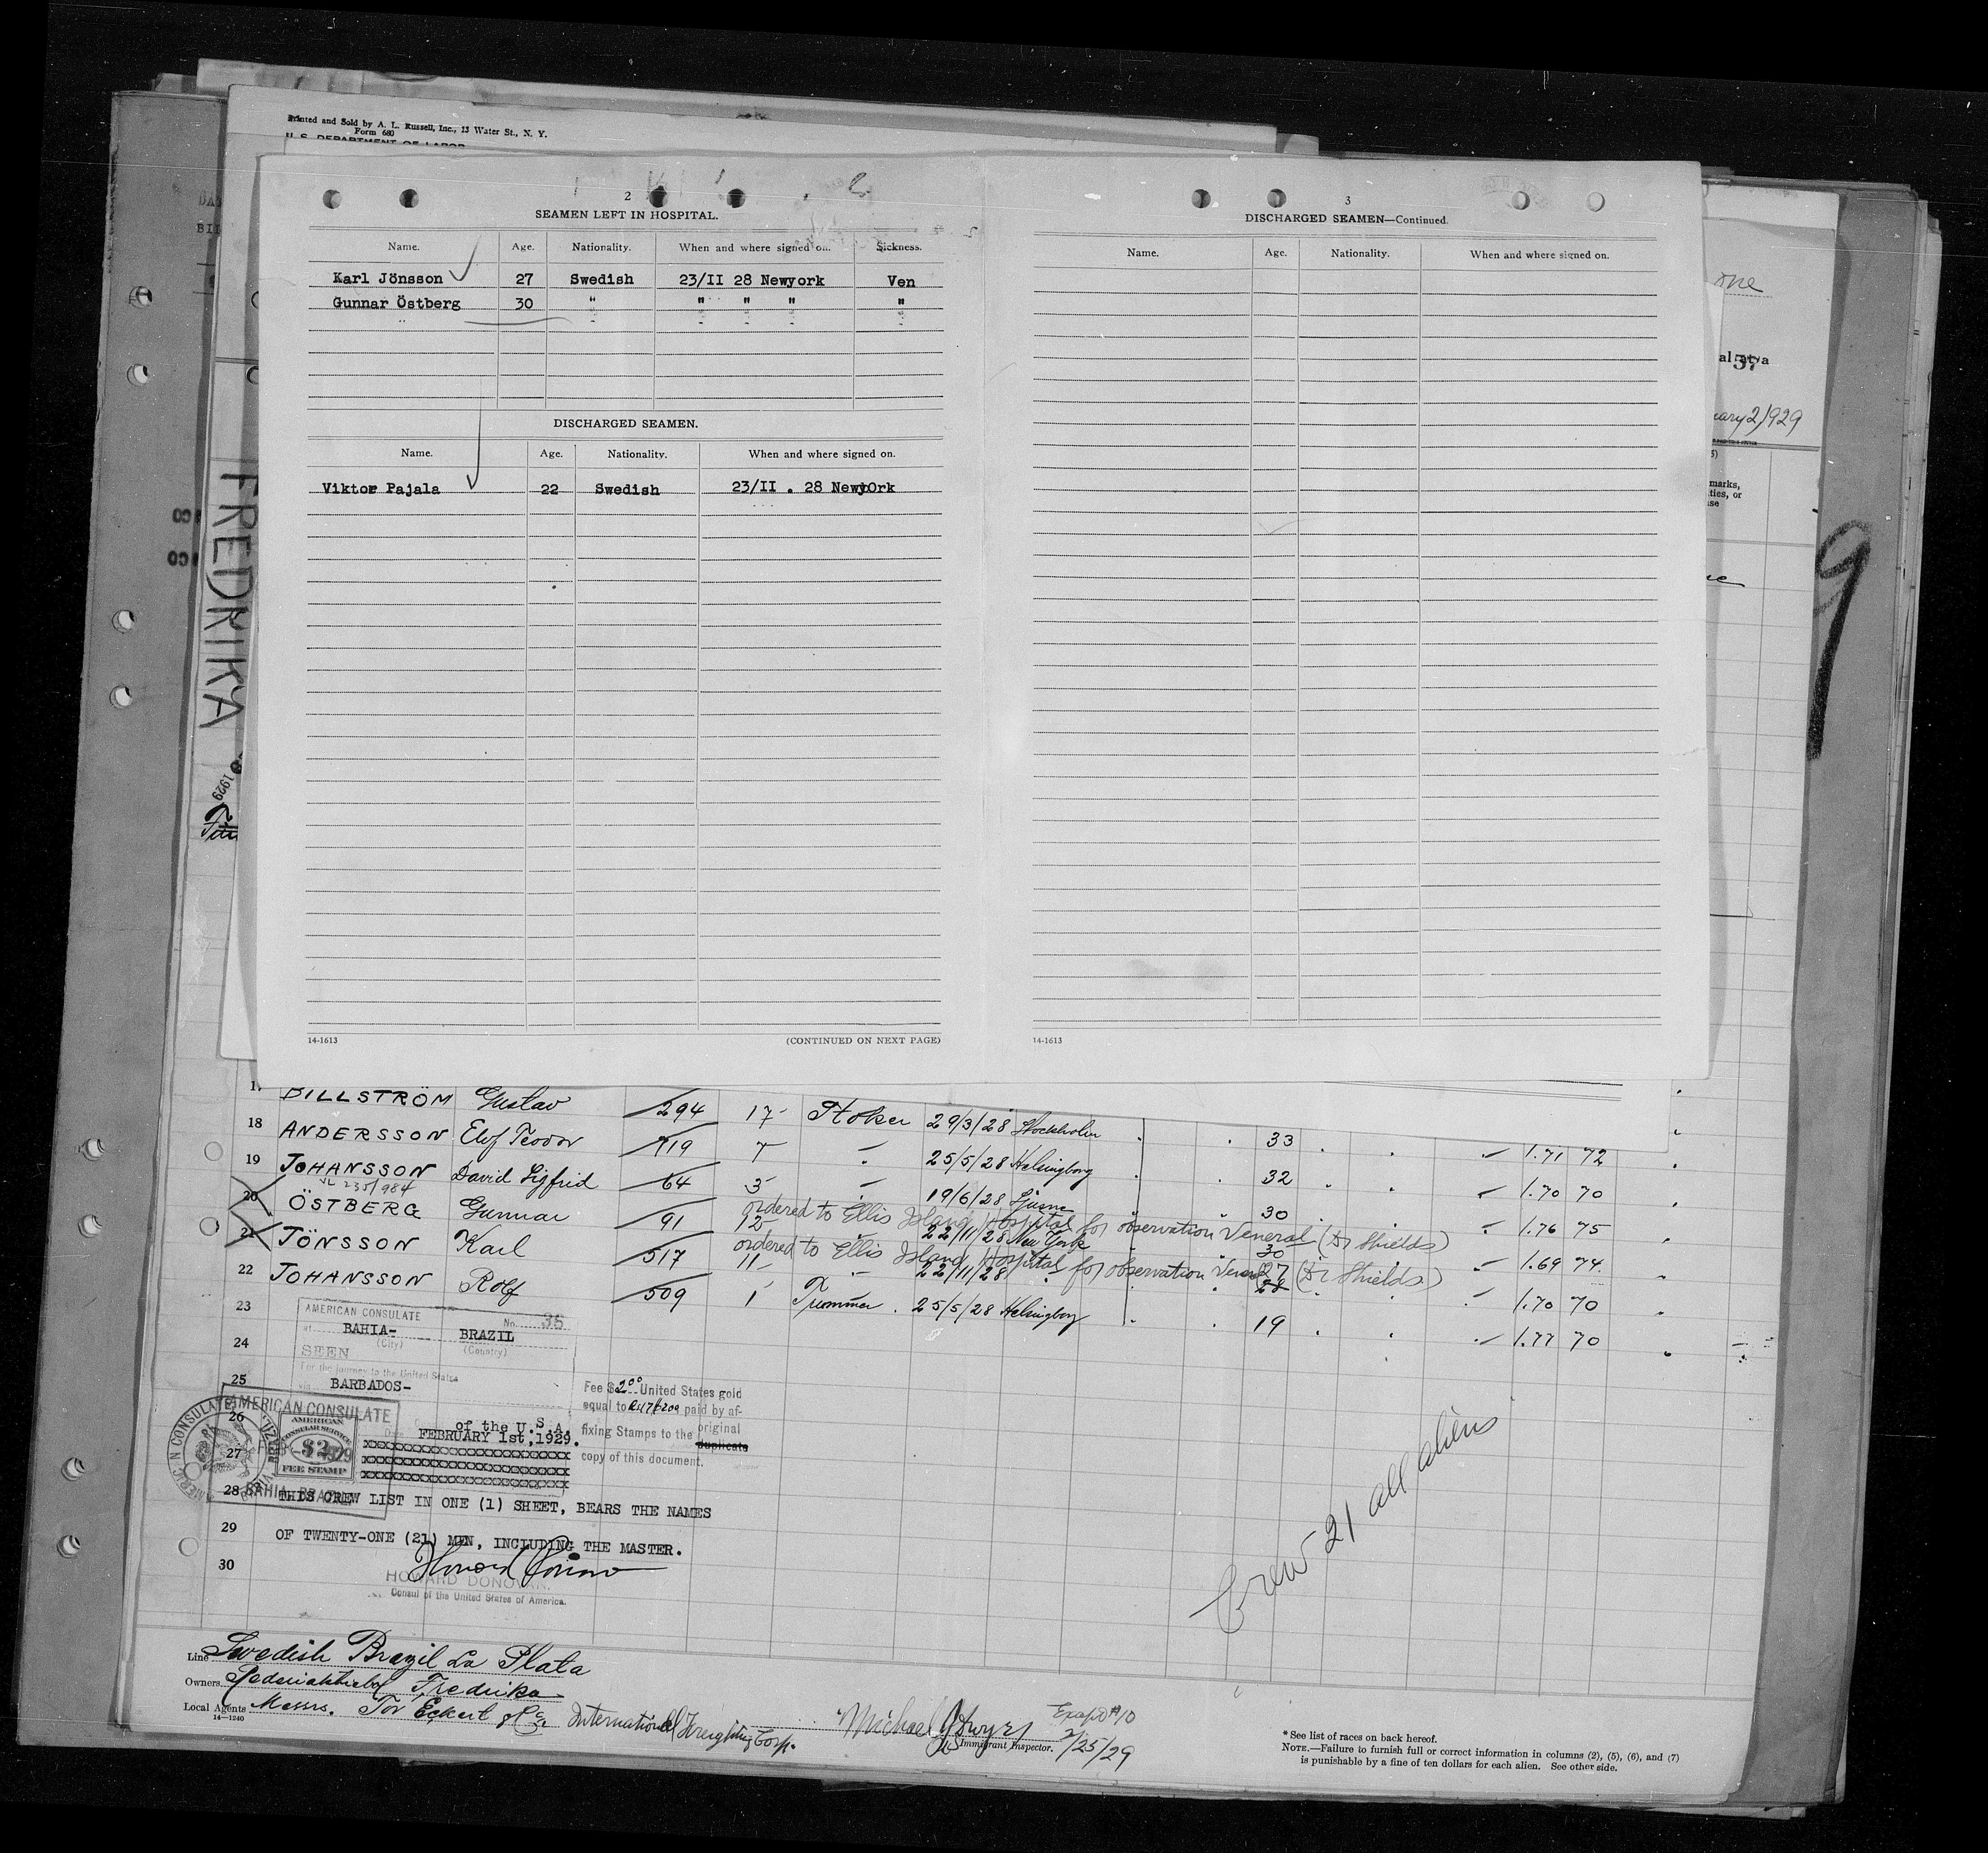 Printed and Sold by A. L. Russell, Inc., 13 Water St., N. Y.
Form 680
U. S. DEPARTMENT OF LABOR
2
SEAMEN LEFT IN HOSPITAL.
Name. Age. Nationality. When and where signed on. Sickness.
Karl Jönsson 27 Swedish 23/II 28 Newyork Ven
Gunnar Östberg 30 " " " " "
DISCHARGED SEAMEN.
Name. Age. Nationality. When and where signed on.
Viktor Pajala 22 Swedish 23/II . 28 NewyOrk
14-1613 (CONTINUED ON NEXT PAGE)
3
DISCHARGED SEAMEN—Continued.
Name. Age. Nationality. When and where signed on.
14-1613
57
2/929
marks,
ties, or
FREDRIKA
1929
9
BILLSTRÖM Gustav 294 17 Stoker 29/3/28 Stockholm 33 1.71 72
18 ANDERSSON Elof Teodor 719 7 " 25/5/28 Helsingborg 32 1.70 70
19 JOHANSSON David Sigfrid 64 5 " 19/6/28 Ljusne 30 1.76 75
235/984
ordered to Ellis Island Hospital for observation Veneral (Dr Shields)
20 ÖSTBERG Gunnar 91 12 22/11/28 New York 30 1.69 74
ordered to Ellis Island Hospital for observation Veneral (Dr Shields)
21 JÖNSSON Karl 517 11 " 22/11/28 " 27 28 1.70 70
22 JOHANSSON Rolf 509 1 Trimmer 25/5/28 Helsingborg 19 1.77 70
23
24
25
26
27
28
29
30
AMERICAN CONSULATE
No. 36
at BAHIA- BRAZIL
(City) (Country)
SEEN
For the journey to the United States
via BARBADOS-
of the U.S.A.
FEBRUARY 1st, 1929.
AMERICAN CONSULATE
AMERICAN
CONSULAR SERVICE
$2
FEE STAMP
BAHIA, BRAZIL
Fee $2.00 United States gold
equal to paid by af-
fixing Stamps to the original
duplicate
copy of this document.
THIS CREW LIST IN ONE (1) SHEET, BEARS THE NAMES
OF TWENTY-ONE (21) MEN, INCLUDING THE MASTER.
Howard Donovan
HOWARD DONOVAN.
Consul of the United States of America.
Crew 21 all aliens
Line Swedish Brazil La Plata
Owners Rederiaktiebol Fredrika
Local Agents Messrs. Tor Eckert & Co. International Freighting Corp.
14—1240
Michael J Dwyer
Immigrant Inspector.
2/25/29
* See list of races on back hereof.
NOTE.—Failure to furnish full or correct information in columns (2), (5), (6), and (7)
is punishable by a fine of ten dollars for each alien. See other side.